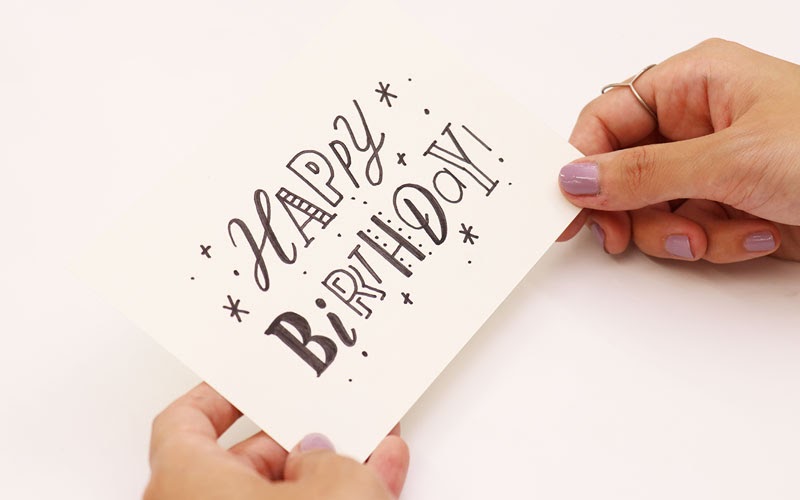 HAPpy
BiRTHDaY!